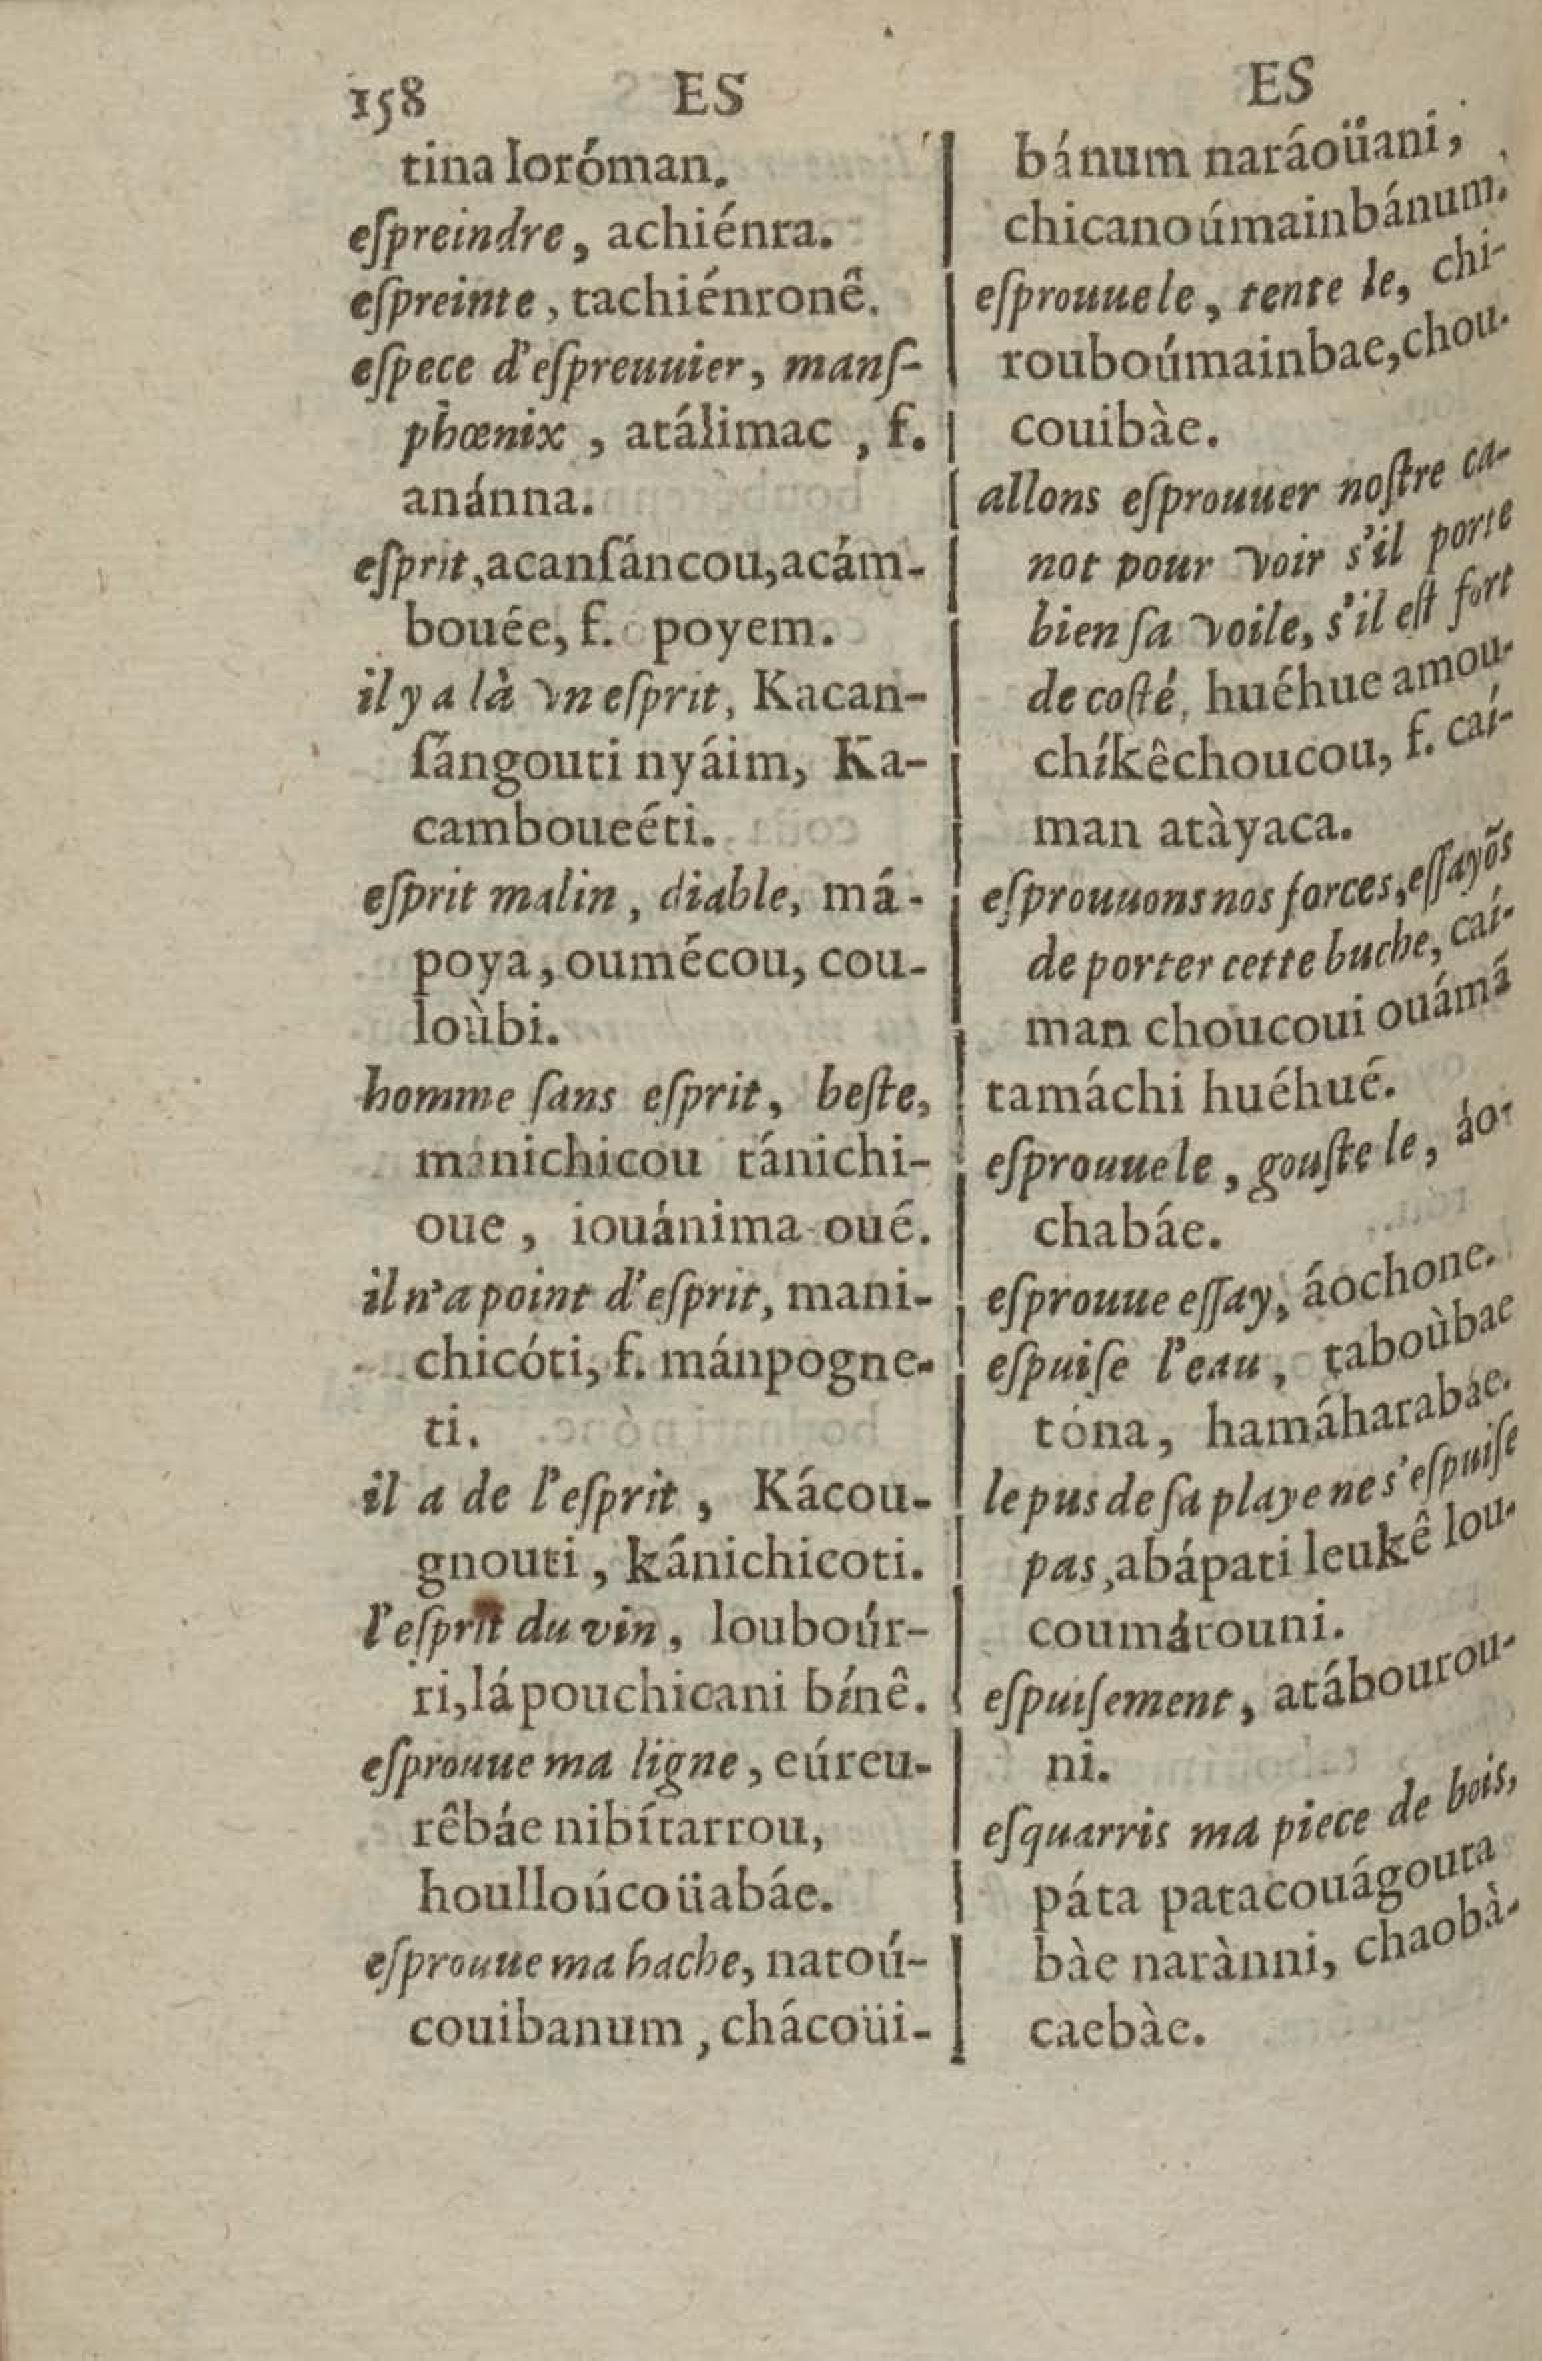 158 ES
tina loróman.
eſpreindre, achiénra.
eſpreinte, tachiénronê.
eſpece d'eſpreuuier, manſ-
phœnix, atálimac, f.
anánna.
eſprit, acanſáncou, acám-
bouée, f. poyem.
il y a là vn eſprit, Kacan-
ſángouti nyáim, Ka-
camboueéti.
eſprit malin, diable, má-
poya, oumécou, cou-
loùbi.
homme ſans eſprit, beſte,
manichicou tánichi-
oue, iouánima oué.
il n'a point d'eſprit, mani-
chicóti, f. mánpógne-
ti.
il a de l'eſprit, Kácou-
gnouti, kánichicoti.
l'eſprit du vin, louboúr-
ri, lápouchicani bínê.
eſprouue ma ligne, eúreu-
rêbáe nibítarrou,
houlloúcoüabáe.
eſprouue ma hache, natoú-
couibanum, chácoüi-
ES
bánum naráoüani,
chicanoúmainbánum.
eſprouue le, tente le, chi-
rouboúmainbae, chou-
couibàe.
allons eſprouuer noſtre ca-
not pour voir s'il porte
bien ſa voile, s'il eſt fort
de coſté, huéhue amou-
chíkêchoucou, f. caí-
man atàyaca.
eſprouuons nos forces, eſſayõs
de porter cette buche, caí-
man choucoui ouámã
tamáchi huéhué.
eſprouue le, gouſte le, áo-
chabáe.
eſprouue eſſay, áochone.
eſpuiſe l'eau, taboùbae
tóna, hamáharabáe.
le pus de ſa playe ne s'eſpuiſe
pas, abápati leukê lou-
coumárouni.
eſpuiſement, atábourou-
ni.
eſquarris ma piece de bois,
páta patacouágouta
bàe narànni, chaobà-
caebàe.